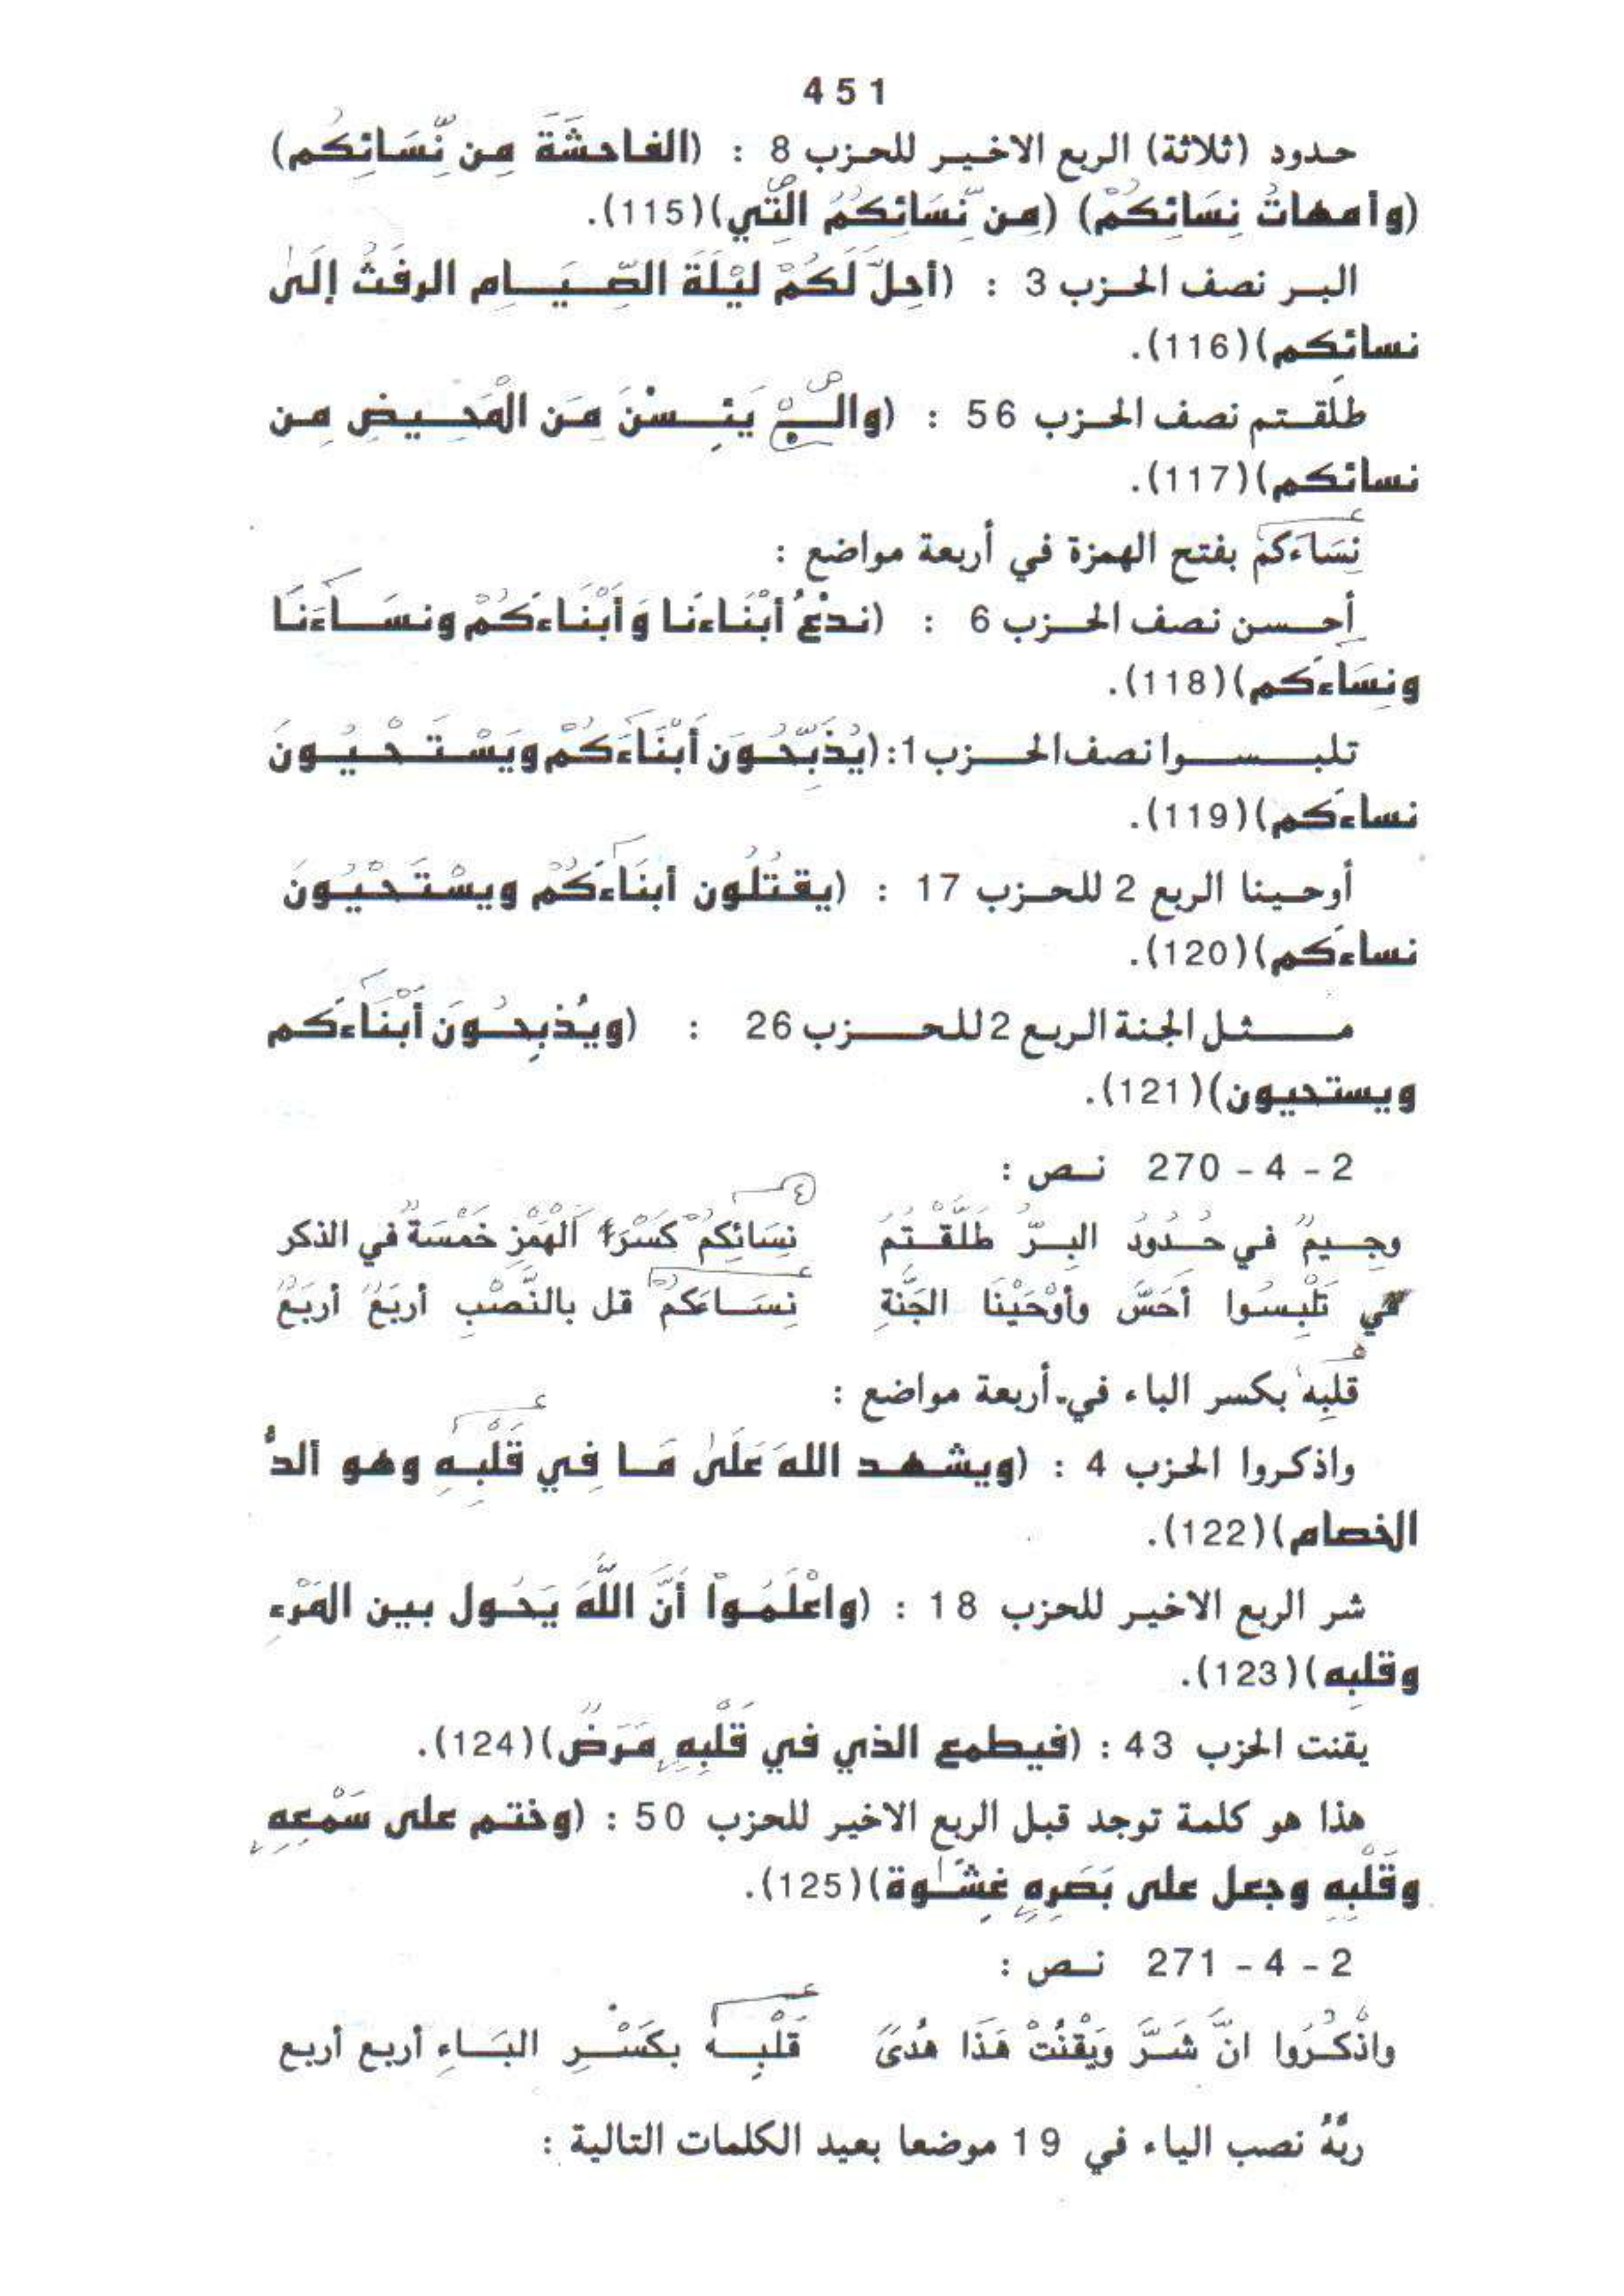 451
حدود (ثلاثة) الربع الاخير للحزب 8 : (الفاحشَةَ مِن نِّسَائِكُم)
(وأمهاتُ نِسَائِكُمْ) (مِن نِّسَائِكُمُ الَّتِي)(115).
البر نصف الحزب 3 : (أحِلَّ لَكُمْ لَيْلَةَ الصِّيَامِ الرفَثُ إلَىٰ
نسائِكم)(116).
طلَقتم نصف الحزب 56 : (والے يَئِسْنَ مِنَ الْمَحِيضِ مِن
نسائكم)(117).
نِسَاءَكمْ بفتح الهمزة في أربعة مواضع :
أحسن نصف الحزب 6 : (ندْعُ أبْنَاءنَا وَأبْنَاءَكُمْ ونسَاءَنَا
ونِسَاءَكم)(118).
تلبسوا نصف الحزب 1: (يُذَبِّحُونَ أبْنَاءَكُمْ ويَسْتَحْيُونَ
نساءَكم)(119).
أوحينا الربع 2 للحزب 17 : (يقتُلُون أبنَاءَكُمْ ويسْتَحْيُونَ
نساءَكم)(120).
مثل الجنة الربع 2 للحزب 26 : (ويُذبِحُونَ أبْنَاءَكم
ويستحيون)(121).
2 - 4 - 270 نص :
وجِيمٌ في حُدُودُ البِرّ طَلَّقْتُمُ نِسَائِكُمْ كَسْرَا الْهَمْزِ خَمْسَةٌ في الذكر
في تَلْبِسُوا أحَسَّ وأوْحَيْنَا الجَنَّةِ نِسَاءَكُمْ قل بالنَّصْبِ أربَعٌ أربَعٌ
قلبِه بكسر الباء في أربعة مواضع :
واذكروا الحزب 4 : (ويشهد اللهَ عَلَىٰ مَا فِي قَلْبِهِ وهو ألدُّ
الخصام)(122).
شر الربع الاخير للحزب 18 : (واعْلَمُوا أنَّ اللَّهَ يَحُول بين المَرْءِ
وقلبِه)(123).
يقنت الحزب 43 : (فيطمع الذي في قَلْبِهِ مَرَضٌ)(124).
هذا هو كلمة توجد قبل الربع الاخير للحزب 50 : (وختم على سَمْعِهِ
وقَلْبِهِ وجعل على بَصَرِهِ غِشَاوة)(125).
2 - 4 - 271 نص :
واذْكُرُوا انَّ شَرَّ وَيْقْنُتْ هَذَا هُدىً قَلْبِهِ بكَسْرِ البَاءِ أربع أربع
ربَّهُ نصب الياء في 19 موضعا بعيد الكلمات التالية :